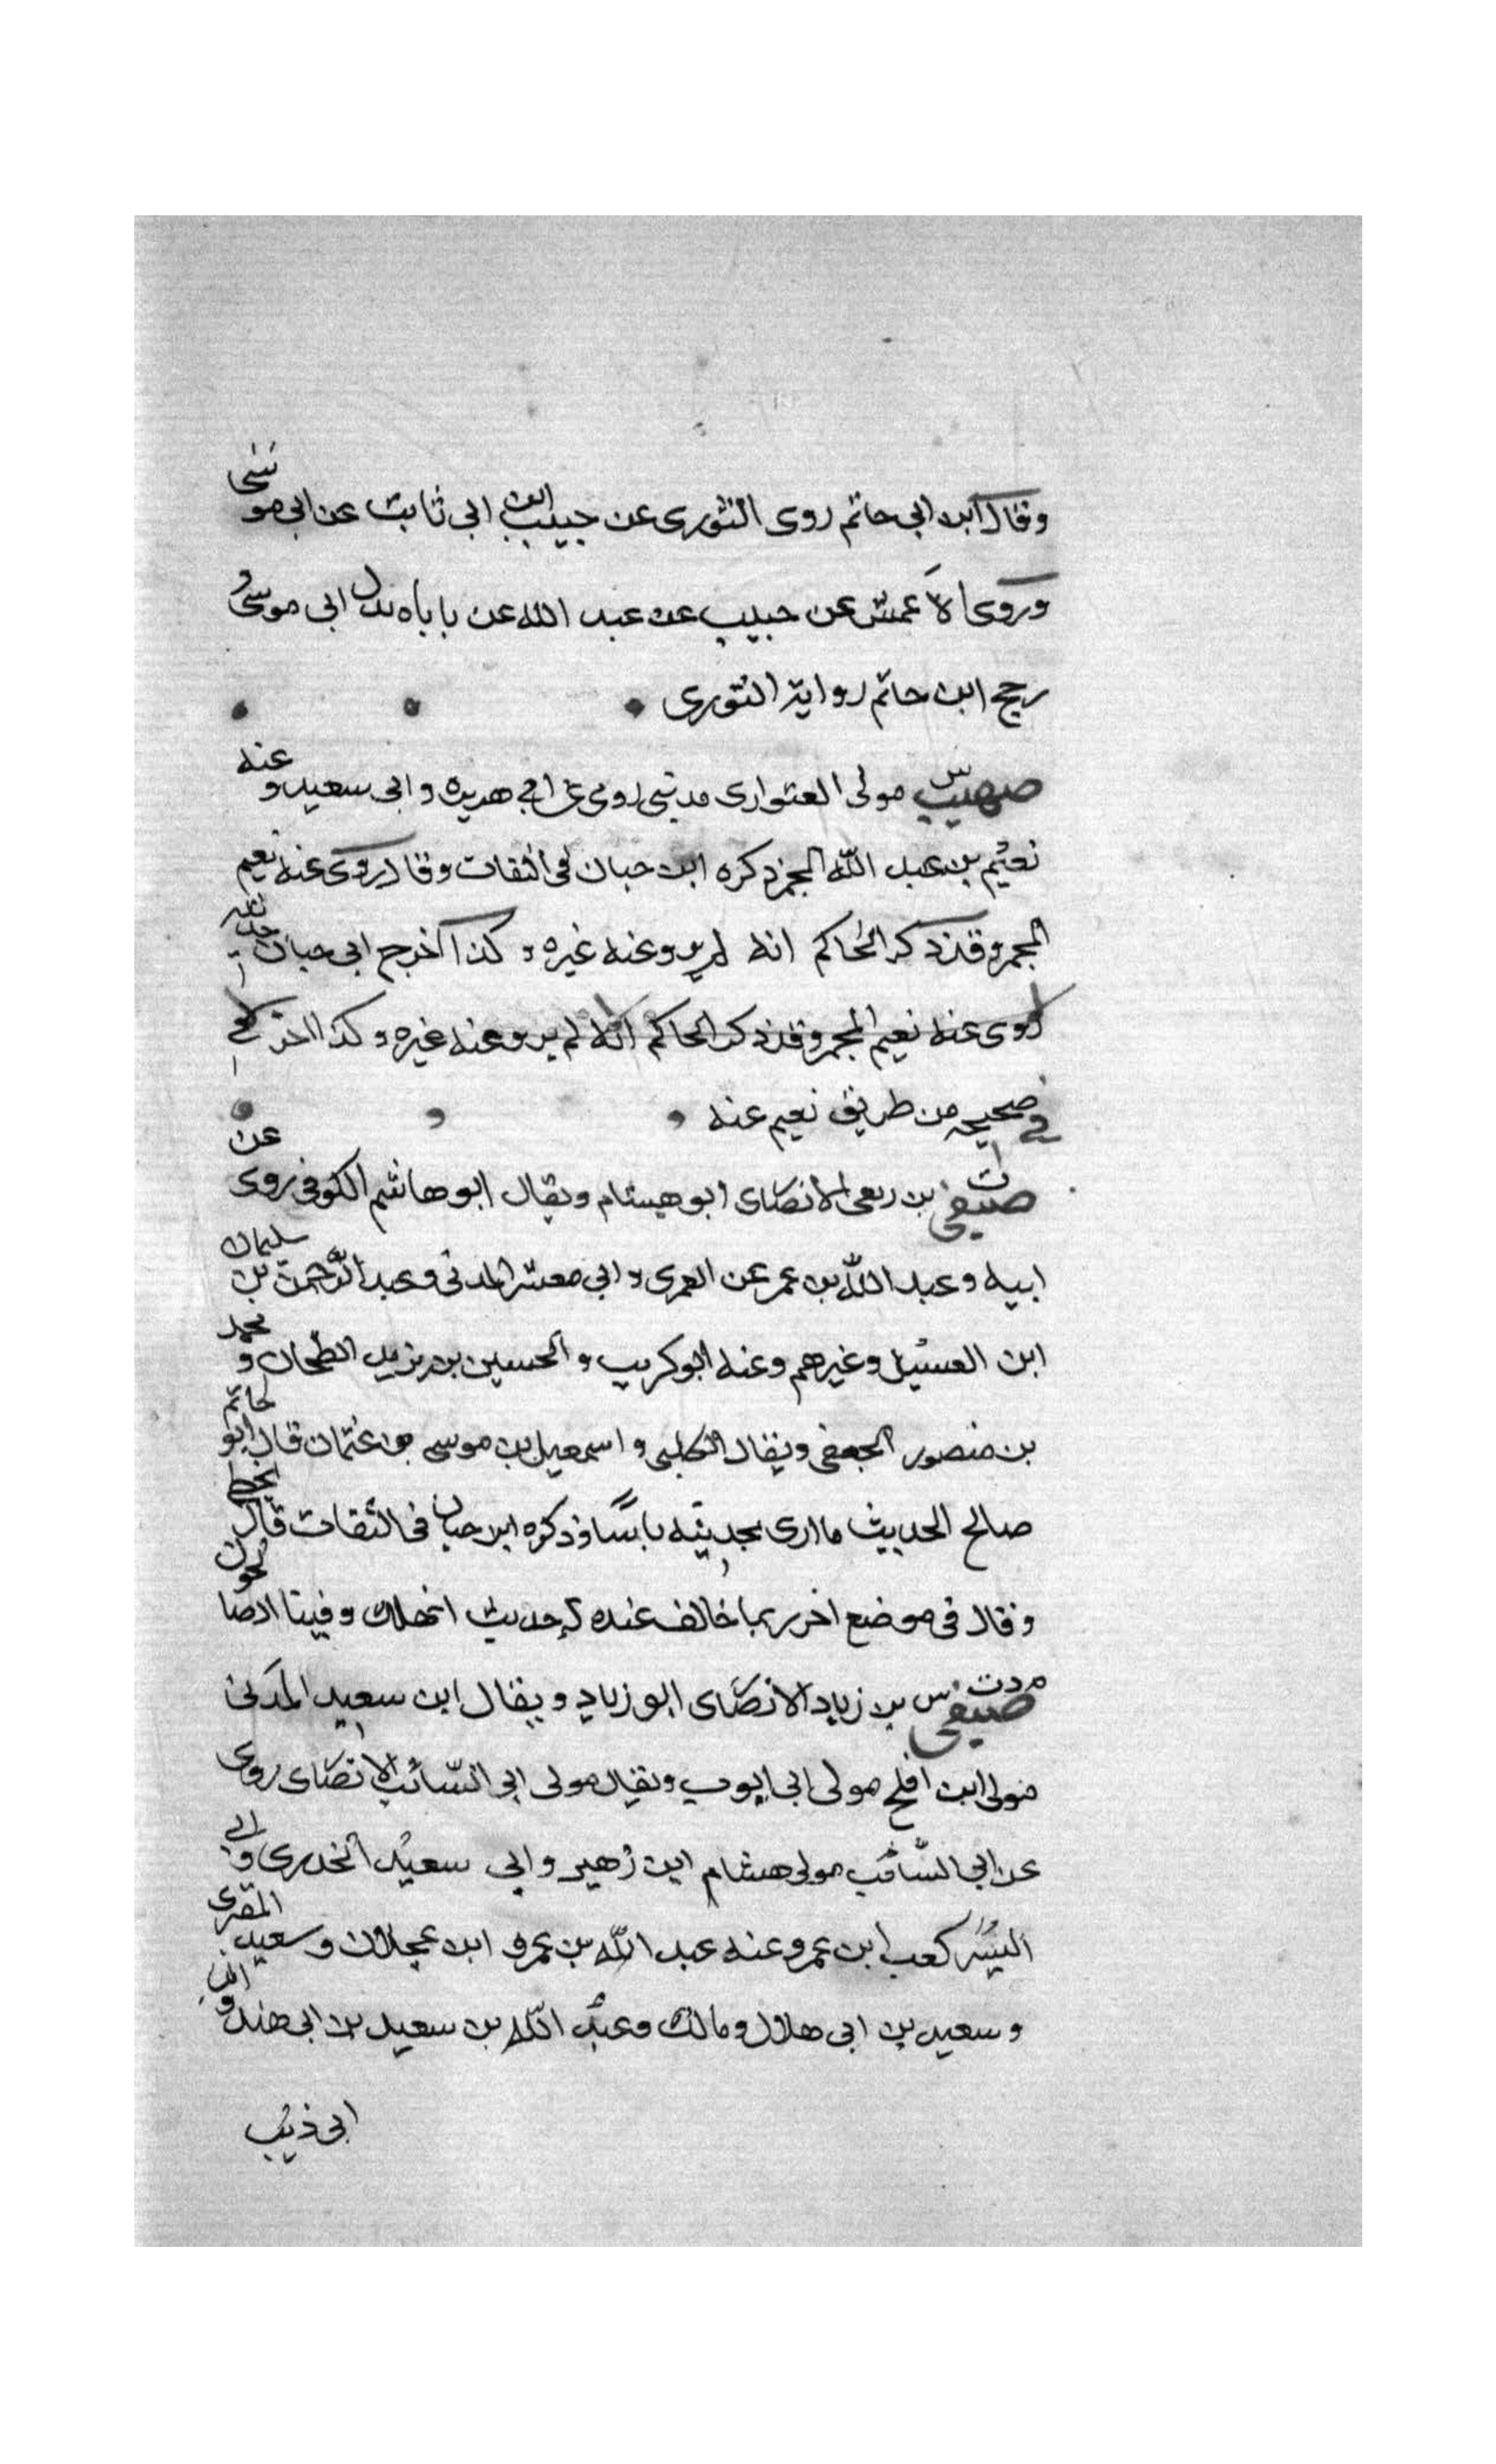 وقال ابن ابى حاتم روى الثورى عن حبيب ابن ابى ثابت عن ابى موسى
وروى الاعمش عن حبيب عن عبد الله عن باباه بدل ابى موسى و
رجح ابن حاتم رواية الثورى
صهيب س مولى العتوارى مدنى روى عن ابي هريره وابى سعيد و عنه
نعيم بن عبد الله المجمر ذكره ابن حبان فى الثقات وقال روى عنه نعيم
المجمر وقد ذكر الحاكم انه لم يرو عنه غيره وكذا اخرج ابى حبان
روى عنه نعيم المجمر وقد ذكر الحاكم انه لم يرو عنه غيره وكذا
في صحيحه من طريق نعيم عنه
صيفى ت بن ربعى الانصارى ابو هشام ويقال ابو هاشم الكوفى روى عن
ابيه وعبد الله بن عمر عن العمرى وابى معشر المدنى وعبد الرحمن بن سليمان
ابن الغسيل وغيرهم وعنه ابو كريب والحسين بن يزيد الطحان و محمد
بن منصور الجعفى ويقال الكلبى واسمعيل بن موسى بن عثمان قال ابو حاتم
صالح الحديث ما ارى بحديثه باسًا وذكره ابن حبان فى الثقات قال
وقال فى موضع اخر ربما خالف عنده له حديث
صيفى م د ت س بن زياد الانصارى ابو زياد ويقال ابن سعيد المدنى
مولى ابن افلح مولى ابى ايوب ويقال مولى ابى السائب الانصارى روى
عن ابى السائب مولى هشام ابن زهير وابى سعيد الخدرى و ابى
اليسر كعب ابن عمرو عنه عبد الله بن عمر و ابن عجلان وسعيد المقبرى
وسعيد بن ابى هلال ومالك وعبد الله بن سعيد بن ابى هند و ابن
ابى ذئب